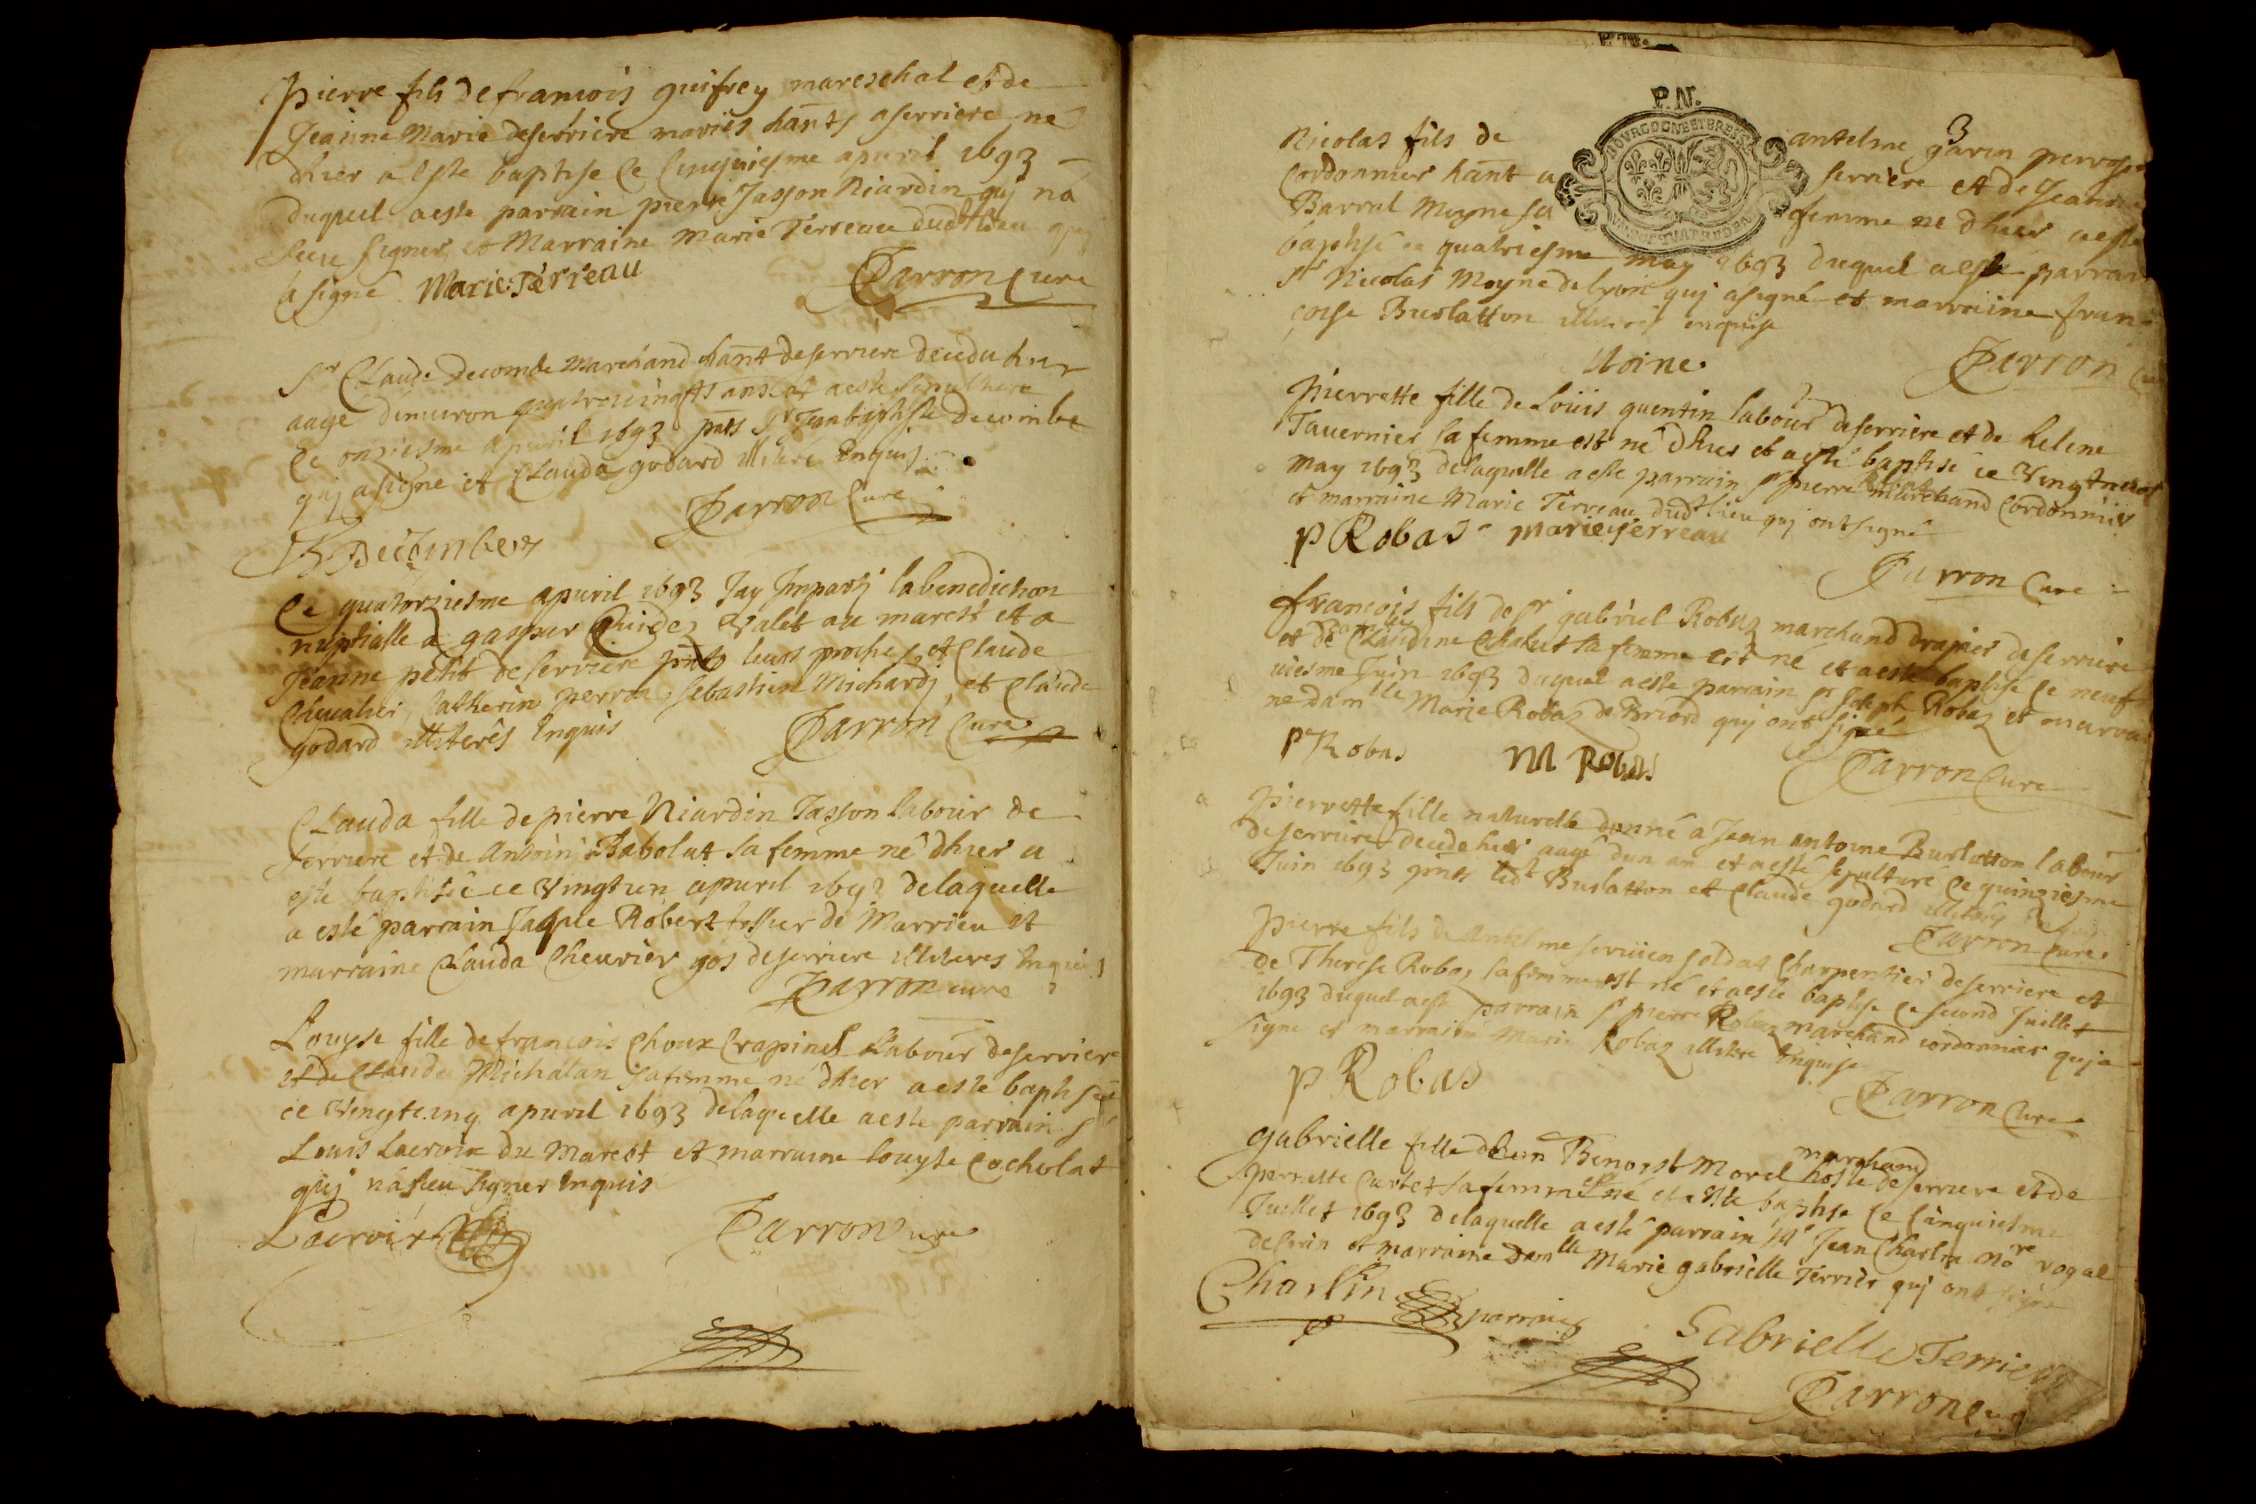 Pierre fils de francois guifrey mareschal et de
Jeanne Marie deserriere mariés hants a serriere né
dhier a esté baptise ce cinquiesme apuril 1693
duquel a este parrain pierre Jasson Niardin quj na
sceu signer et Marraine Marie Terreau dudt lieu quj
a signé Marie Terreau Parron Cure
Sr Claude decombe Marchand hant deserriere decedu hier
aagé denuiron quatrevingts ans et a este sepulturé
ce onziesme apuril 1693 pnts Sr Jean baptiste decombe
quj a signé et Claude godard illiteré Enquis
Parron Cure
Ce quatorziesme apuril 1693 Jay Imparti la benediction
nuptialle a gaspar valet au marest et a
Jeanne petit de serriere pnts leurs proches et Claude
Cheualier, Catherin perron, sebastien Michard, et Claude
godard illiterés Inquis Parron Cure
Clauda fille de pierre Niardin Jasson labour de
serriere et de Antoinie Babolat sa femme né dhier a
esté baptisée ce Vingt un apuril 1693 delaquelle
a esté parrain Jaque Robert tessier de Marrieu et
marraine Clauda Cheurier gos deserriere illiteres Inquis
Parron cure
Louyse fille de francois Choux Crapinel Labour deserriere
et de Claudu Michalan sa femme né dhier a este baptisée
ce Vingtcinq apuril 1693 delaquelle a este parrain Sr
Louis Lacroix du Marest et marraine louyse Cocholat
quj na sceu signer Inquis
Lacroix Parron Cure
P.N.
3
Nicolas fils de antelme garin perrossi
Cordonnier hant a serriere et de Jeanne
Barral Moyne sa femme né dhier a este
baptisé ce quatriesme may 1693 duquel a este parrain
Sr Nicolas Moyne de lyon quj a signé et marraine fran-
coise Burlatton illiteré enquise
Moine Parron Cure
Pierrette fille de Loüis quentin labour deserriere et de helene
Tauernier sa femme est né dhier et a esté baptisé ce Vingtneuf
May 1693 delaquelle a este parrain Sr pierre marchand Cordonnier
et marraine Marie Terreau dudt lieu quj ont signé
P Robas marie Terreau
Parron Cure
francois fils de Sr gabriel Robas marchand drapier deserriere
et de Claudine Chalut sa femme est né et a este baptisé ce neuf
uiesme Juin 1693 duquel a este parrain Sr Joseph Robaz et marrai
ne damlle Marie Robaz de Briord quj ont signé
P Robas M Robas Parron Cure
Pierrette fille naturelle donné a Jean antoine Burlatton labour
deserriere decede hier aagé dun an et a esté sepulturé ce quinziesme
Juin 1693 pnts ledt Burlatton et Claude godard illiterés
Parron Cure
Pierre fils de Antelme seruien soldat Charpentier deserriere et
de Therese Robas sa femme est né et a este baptise ce second Juillet
1693 duquel a este parrain Sr pierre Robaz marchand cordonnier quj a
signe et marraine Marie Robaz illitere Inquise
P Robas Parron Cure
gabrielle fille de Benoist Morel marchand hoste deserriere et de
Perrette Curtet sa femme est né et a este baptise ce cinquiesme
Juillet 1693 delaquelle a esté parrain Me Jean Charlin nore royal
et marraine damlle Marie gabrielle Terrier quj ont signe
Charlin parrain Gabrielle Terrier
Parron Cure